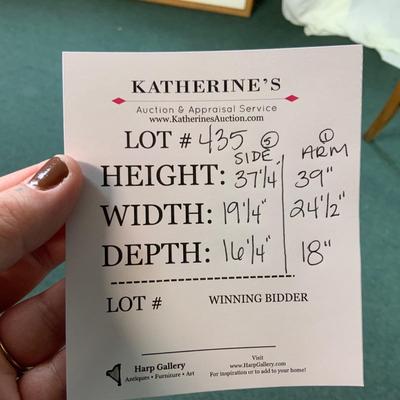 KATHERINE'S
Auction & Appraisal Service
www.KatherinesAuction.com
LOT # 435 ⑤ ①
SIDE ARM
HEIGHT: 37 1/4 39"
WIDTH: 19 1/4" 24 1/2"
DEPTH: 16 1/4" 18"
LOT # WINNING BIDDER
Harp Gallery
Antiques • Furniture • Art
Visit
www.HarpGallery.com
For inspiration or to add to your home!